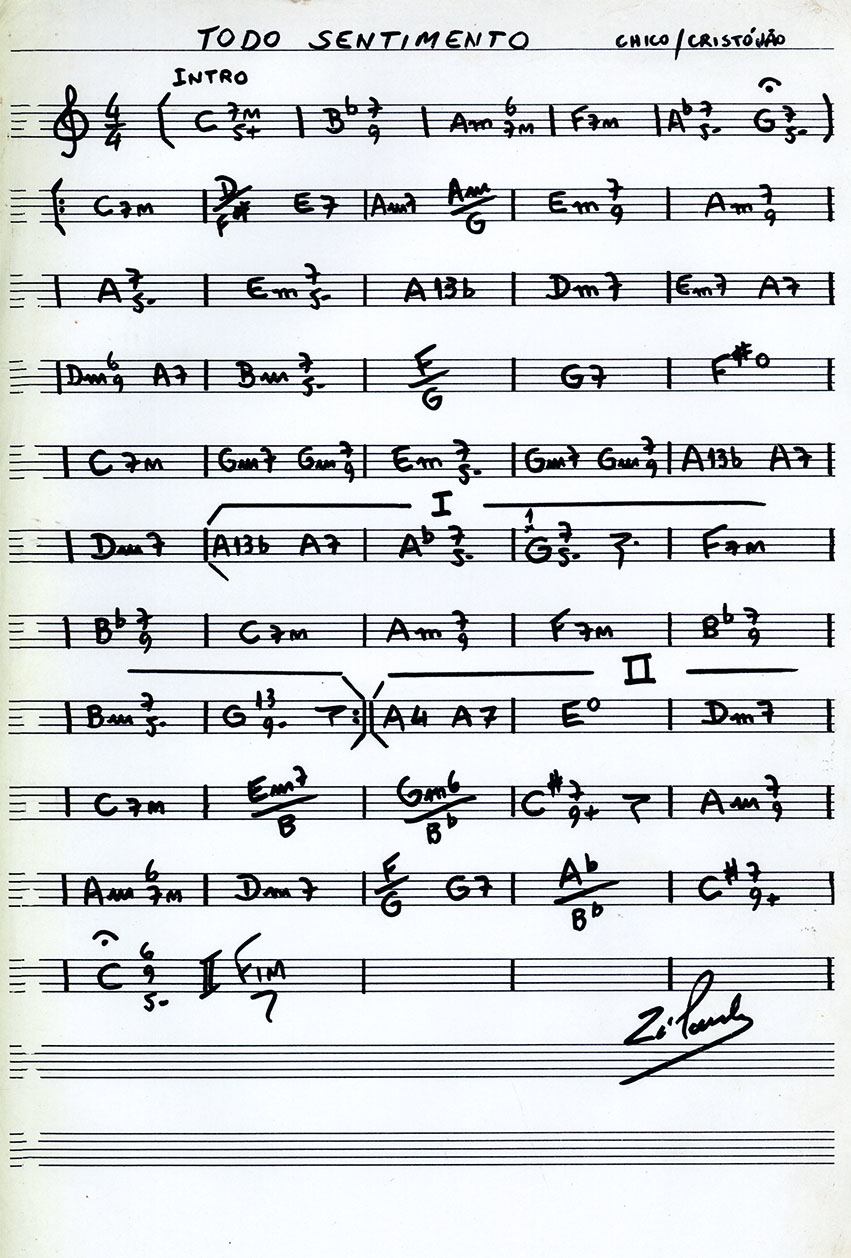 TODO SENTIMENTO CHICO/CRISTÓVÃO
INTRO
4/4 ( C 7M 5+ | Bb 7 9 | Am 6 7M | F7M | Ab 7 5- G 7 5- )
C7M | D/F# E7 | Am7 Am/G | Em 7 9 | Am 7 9 |
| A 7 5- | Em 7 5- | A13b | Dm7 | Em7 A7 |
| Dm 6 9 A7 | Bm 7 5- | F/G | G7 | F#o |
| C7M | Gm7 Gm 7 9 | Em 7 5- | Gm7 Gm 7 9 | A13b A7 |
I
| Dm7 | A13b A7 | Ab 7 5- | 1 G 7 5- | F7M |
| Bb 7 9 | C7M | Am 7 9 | F7M | Bb 7 9 |
II
| Bm 7 5- | G 13 9- :| A4 A7 | Eo | Dm7 |
| C7M | Em7/B | Gm6/Bb | C# 7 9+ | Am 7 9 |
| Am 6 7M | Dm7 | F/G G7 | Ab/Bb | C# 7 9+ |
| C 6 9 5- || FIM